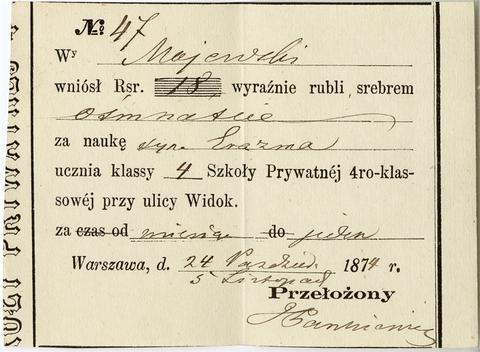 №: 47
Wy Majewski
wniósł Rsr. 18, wyraźnie rubli srebrem
ośmnaście
za naukę syna Erazma
ucznia klassy 4 Szkoły Prywatnéj 4ro-klas-
sowéj przy ulicy Widok.
za czas od miesiąc do jeden
Warszawa, d. 24 Paździer. 1874 r.
5 Listopad
Przełożony